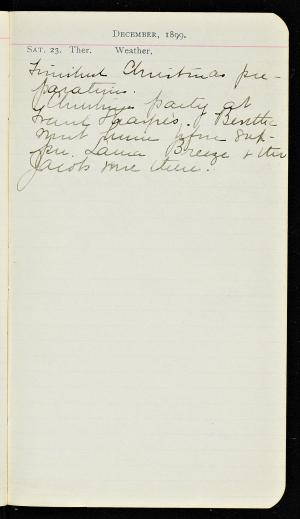 December, 1899.
Sat. 23. Ther. Weather.
Finished Christmas pre-
parations.
party at
Bertha
went home before sup-
per. Laura Breeze & the
Jacobs were there.